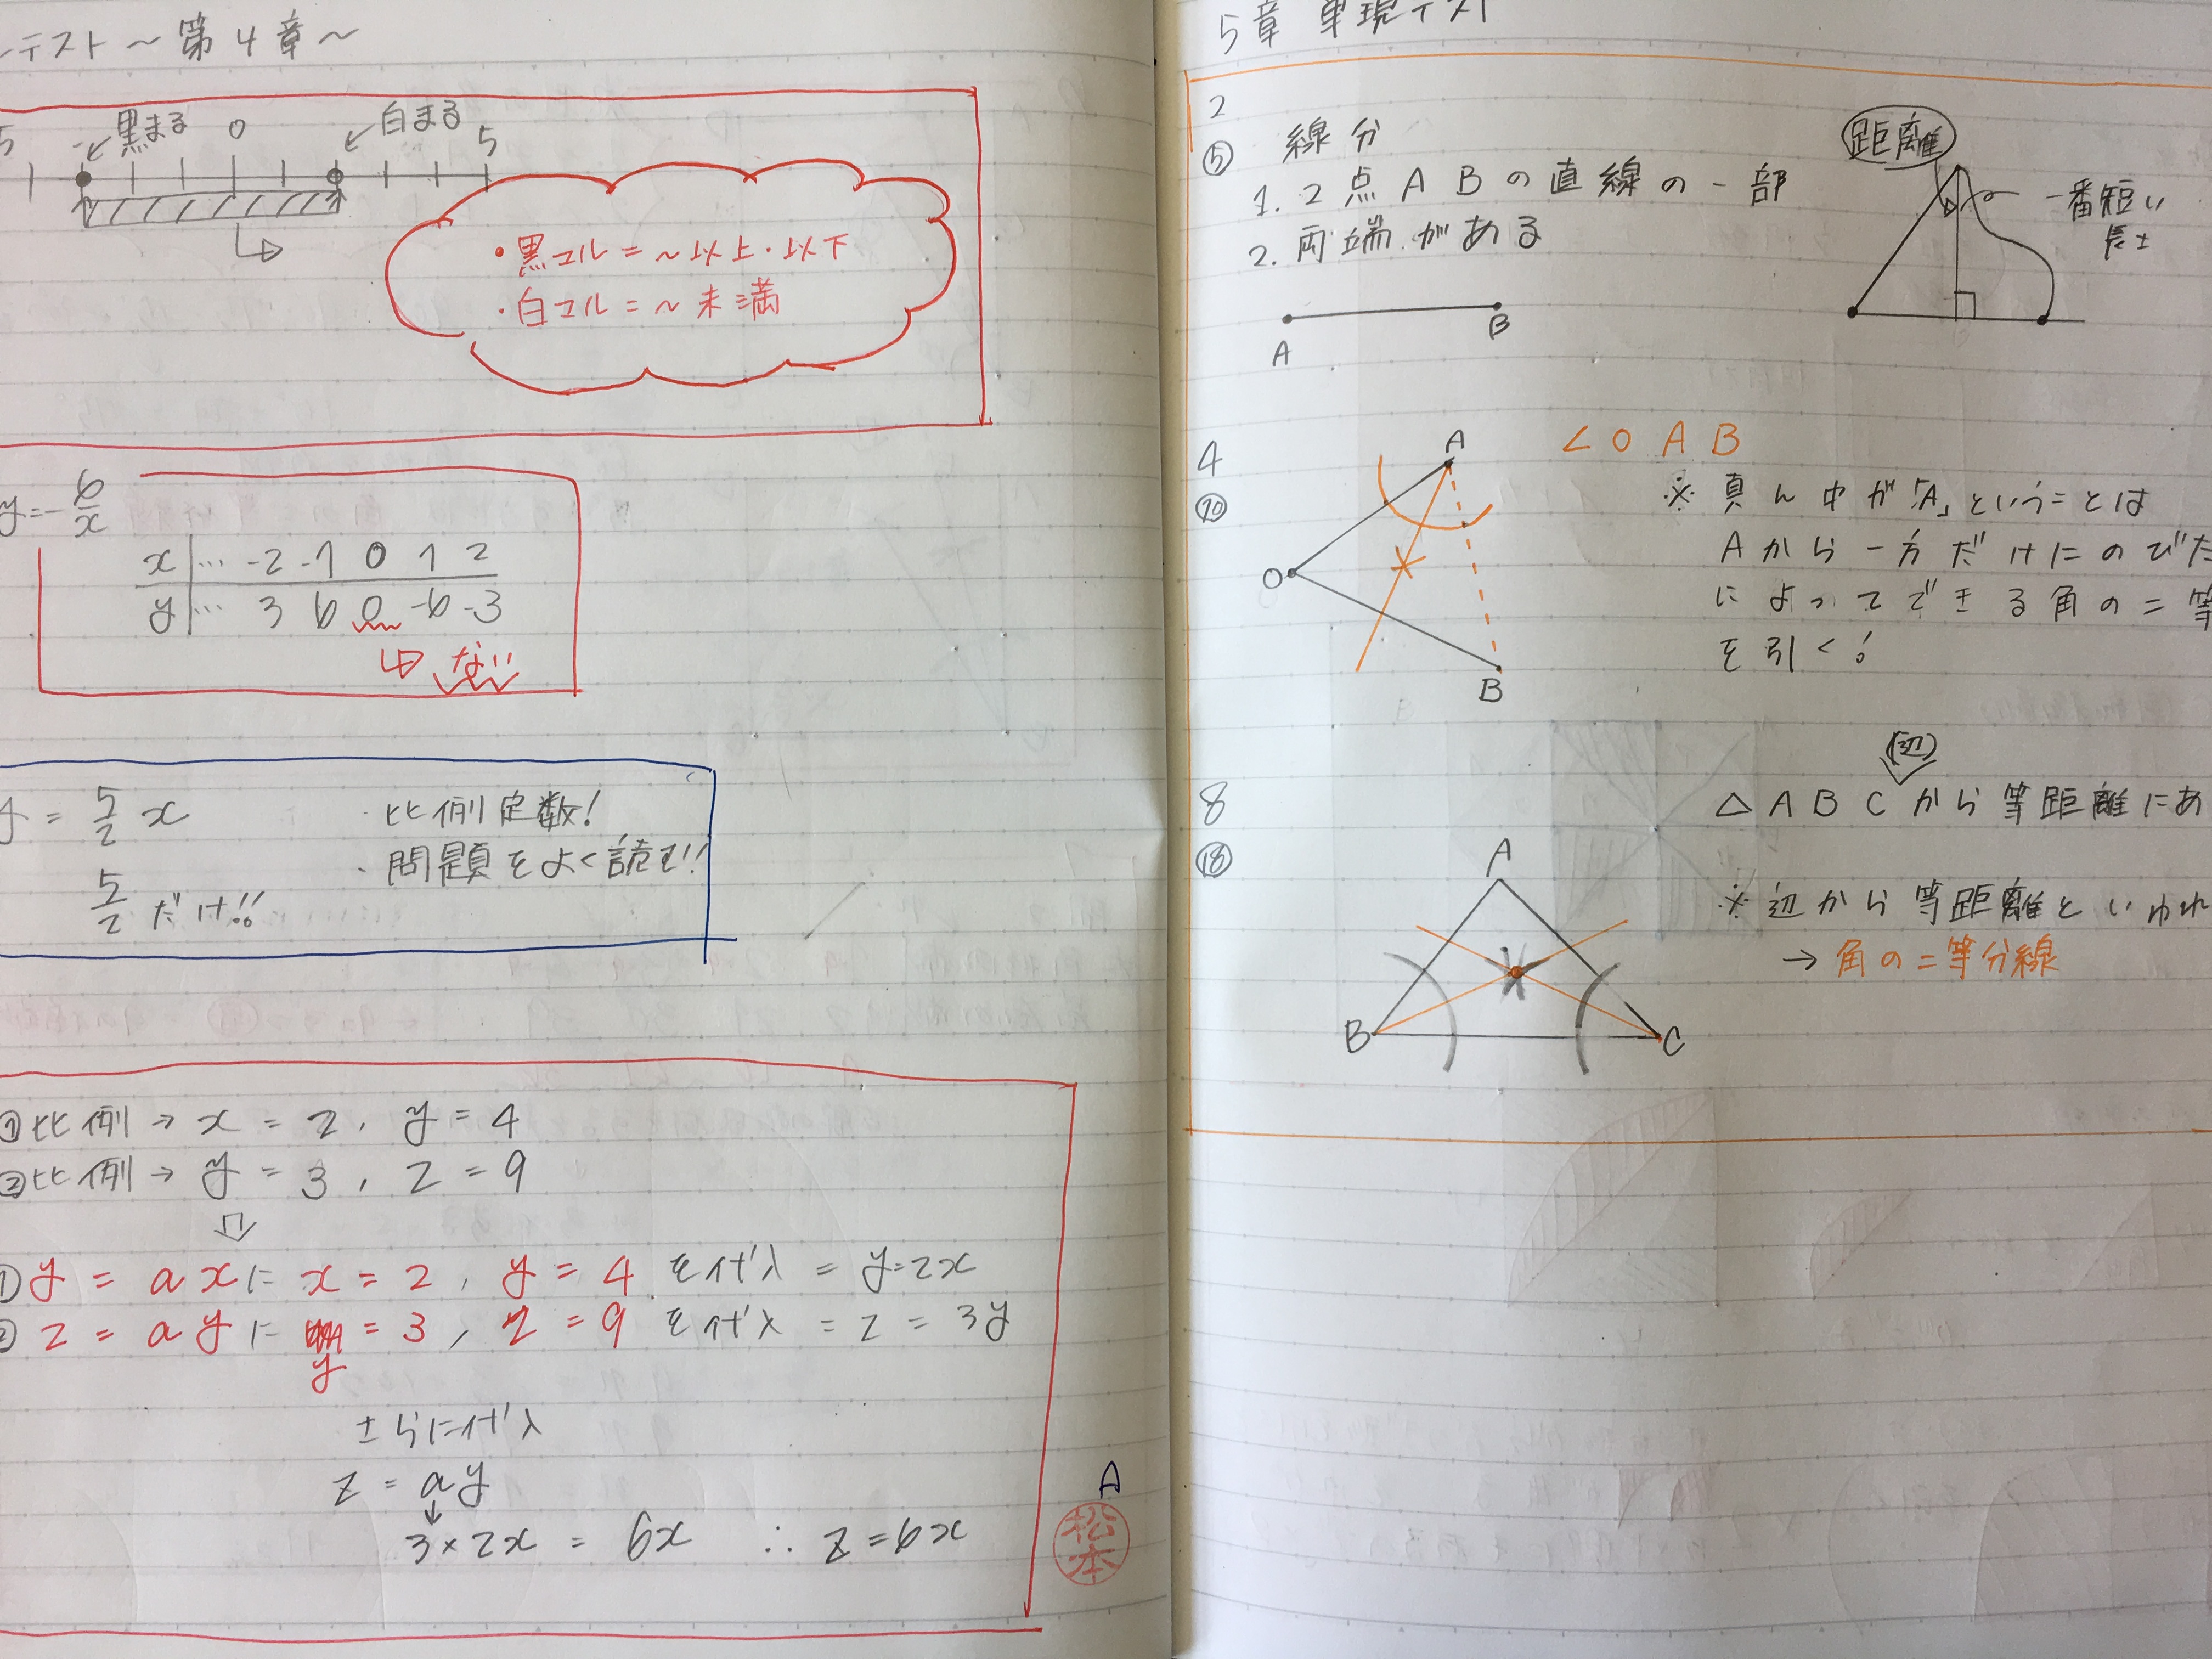 テスト～第4章～
5 黒まる 0 白まる 5
・黒マル=～以上・以下
・白マル=～未満
y=-6/x
x … -2 -1 0 1 2
y … 3 6 0 -6 -3
ない
y = 5/2 x
・比例定数!
・問題をよく読む!!
5/2 だけ!!
①比例→ x = 2, y = 4
②比例→ y = 3, z = 9
① y = axに x = 2, y = 4 を代入 = y=2x
② z = ayに y = 3, z = 9 を代入 = z = 3y
さらに代入
z = ay
3×2x = 6x ∴ z=6x
A
松本
5章 単現テスト
2
⑤ 線分
1. 2点ABの直線の一部
2. 両端がある
A B
距離
一番短い
長さ
4
⑩
A
O
B
∠OAB
※真ん中が「A」ということは
Aから一方だけにのびた
によってできる角の二等
を引く!
8
⑱
(辺)
△ABCから等距離にあ
※辺から等距離といわれ
→角の二等分線
A
B C